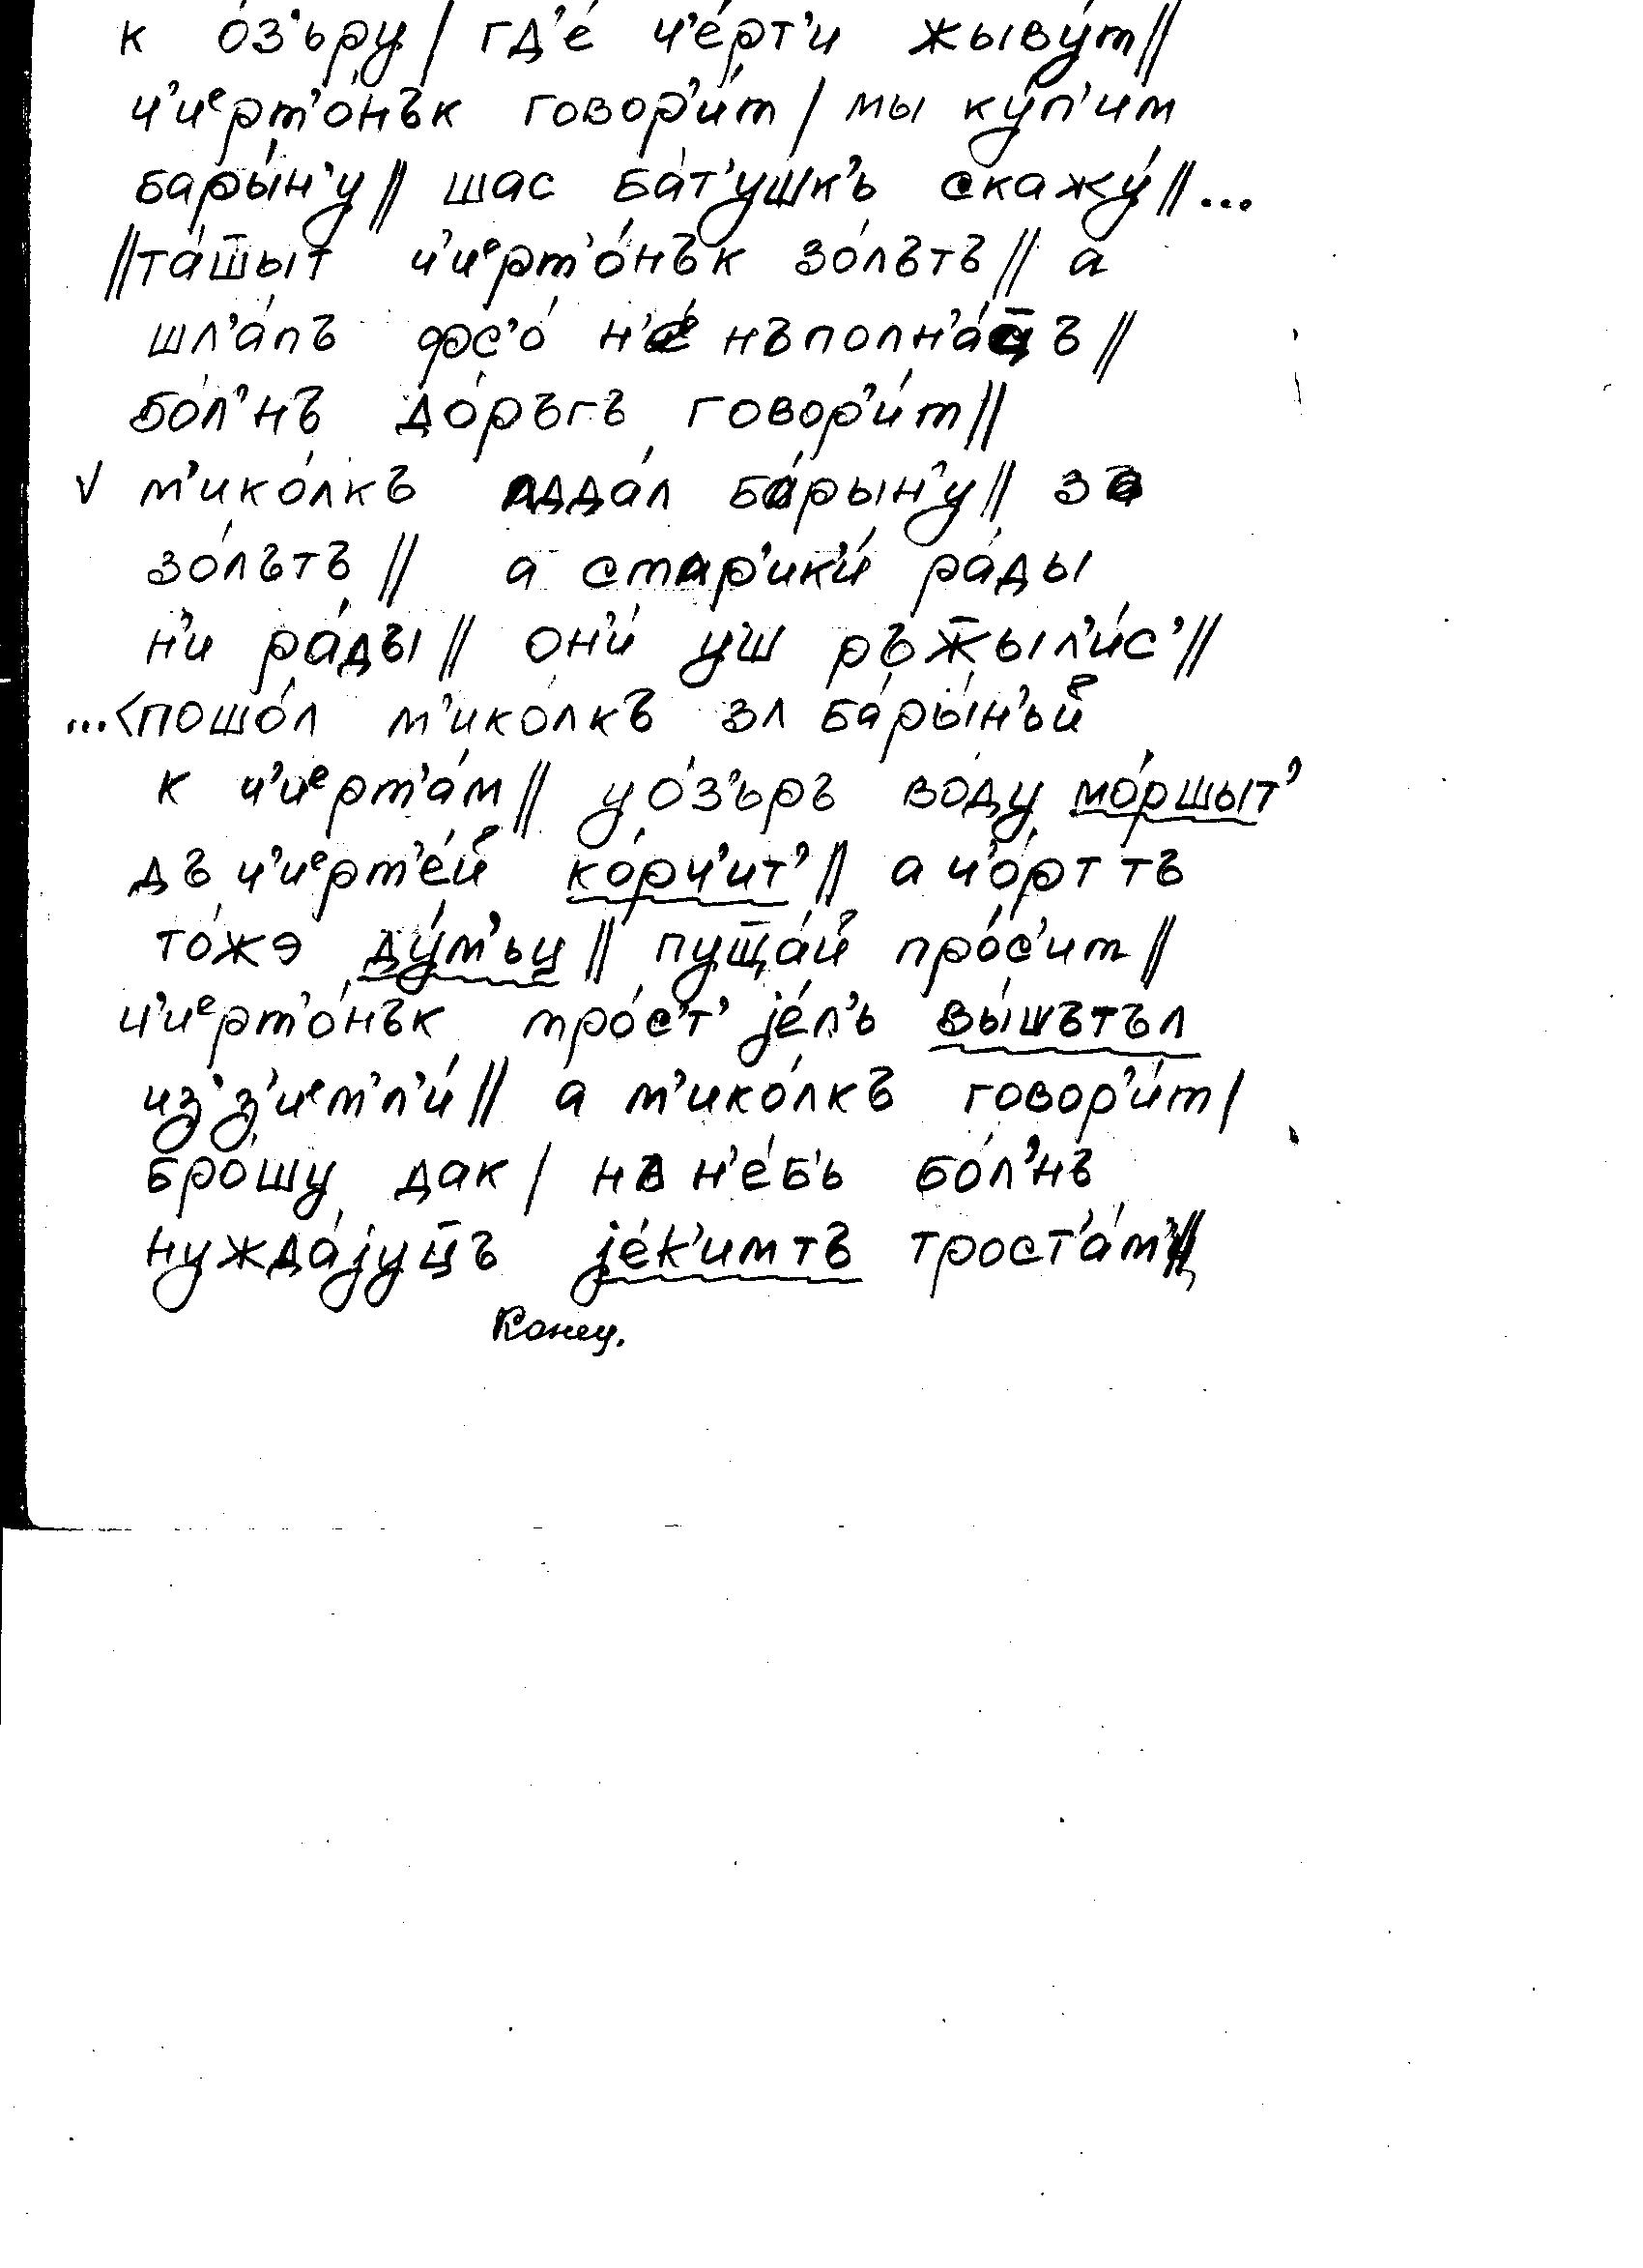 к о́з'ъру / гд'е́ ч'е́рт'и жыву́т //
ч'иᵉрт'о́нък говор'и́т / мы ку́п'им
бары́н'у // шас ба́т'ушк'ь скажу́ // ...
// та́ш̄ыт ч'иᵉрт'о́нък зо́лътъ // а
шл'а́пъ фс'о́ н'е́ нъполн'а́ц̄ъ //
бо́л'нъ до́ръгъ говор'и́т //
√ м'ико́лкъ ʌдда́л ба́рын'у // за
зо́лътъ // а стʌр'ик'и́ ра́ды
н'и ра́ды // он'и́ уш ръж̄ыл'и́с' //
...<пошо́л м'ико́лкъ зʌ ба́ры́н'ьй
к ч'иᵉрт'а́м // у о́з'ъръ во́ду мо́ршыт'
дъ ч'иᵉрт'е́й ко́рч'ит' // а ч'о́рт тъ
то́жэ ду́м'ьц // пущ̄а́й про́с'ит //
ч'иᵉрт'о́нък тро́с'т' је́л'ь вы́шътъл
из' з'иᵉмл'и́ // а м'ико́лкъ говор'и́т /
бро́шу дак / нʌ н'е́б'ь бо́л'нъ
нужда́јуц̄ъ је́к'имтъ трост'а́м'и //
Конец.